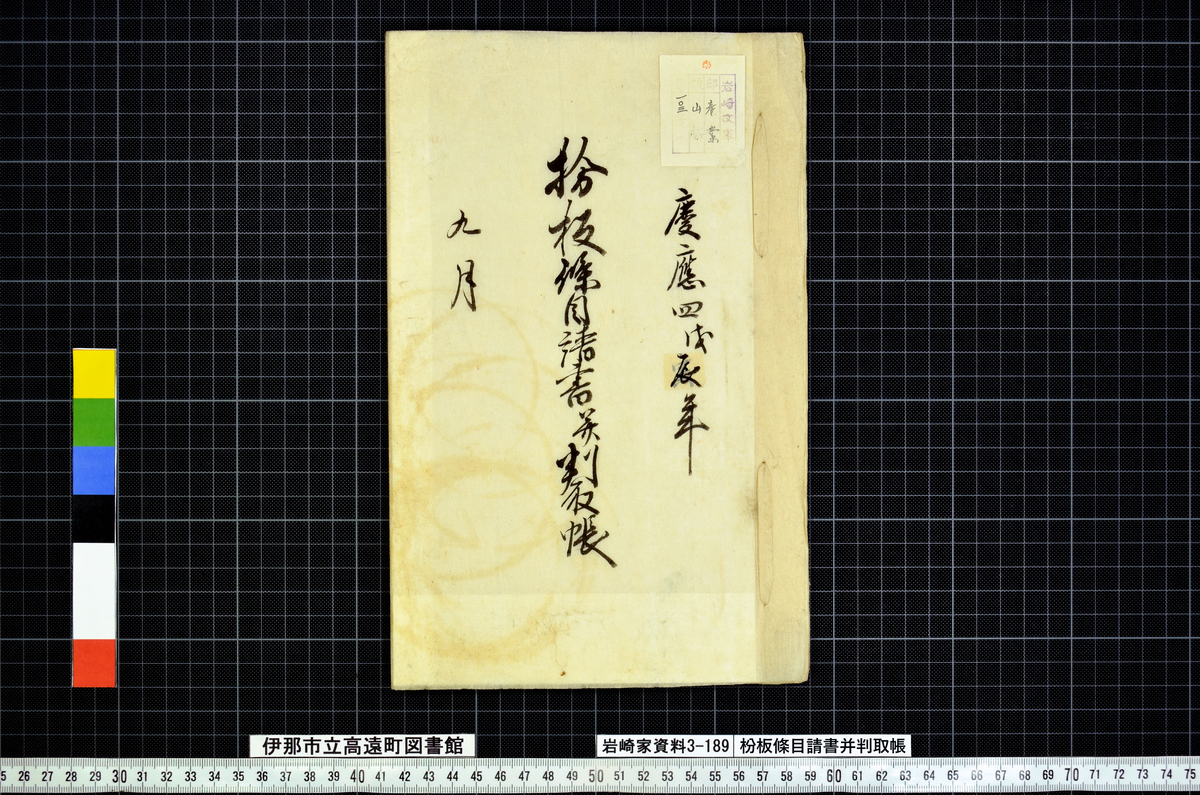 岩崎文庫
印
産業
山
一〇三
慶應四戊辰年
枌板條目請書并判取帳
九月
伊那市立高遠町図書館
岩崎家資料3-189
枌板條目請書并判取帳
5 26 27 28 29 30 31 32 33 34 35 36 37 38 39 40 41 42 43 44 45 46 47 48 49 50 51 52 53 54 55 56 57 58 59 60 61 62 63 64 65 66 67 68 69 70 71 72 73 74 75